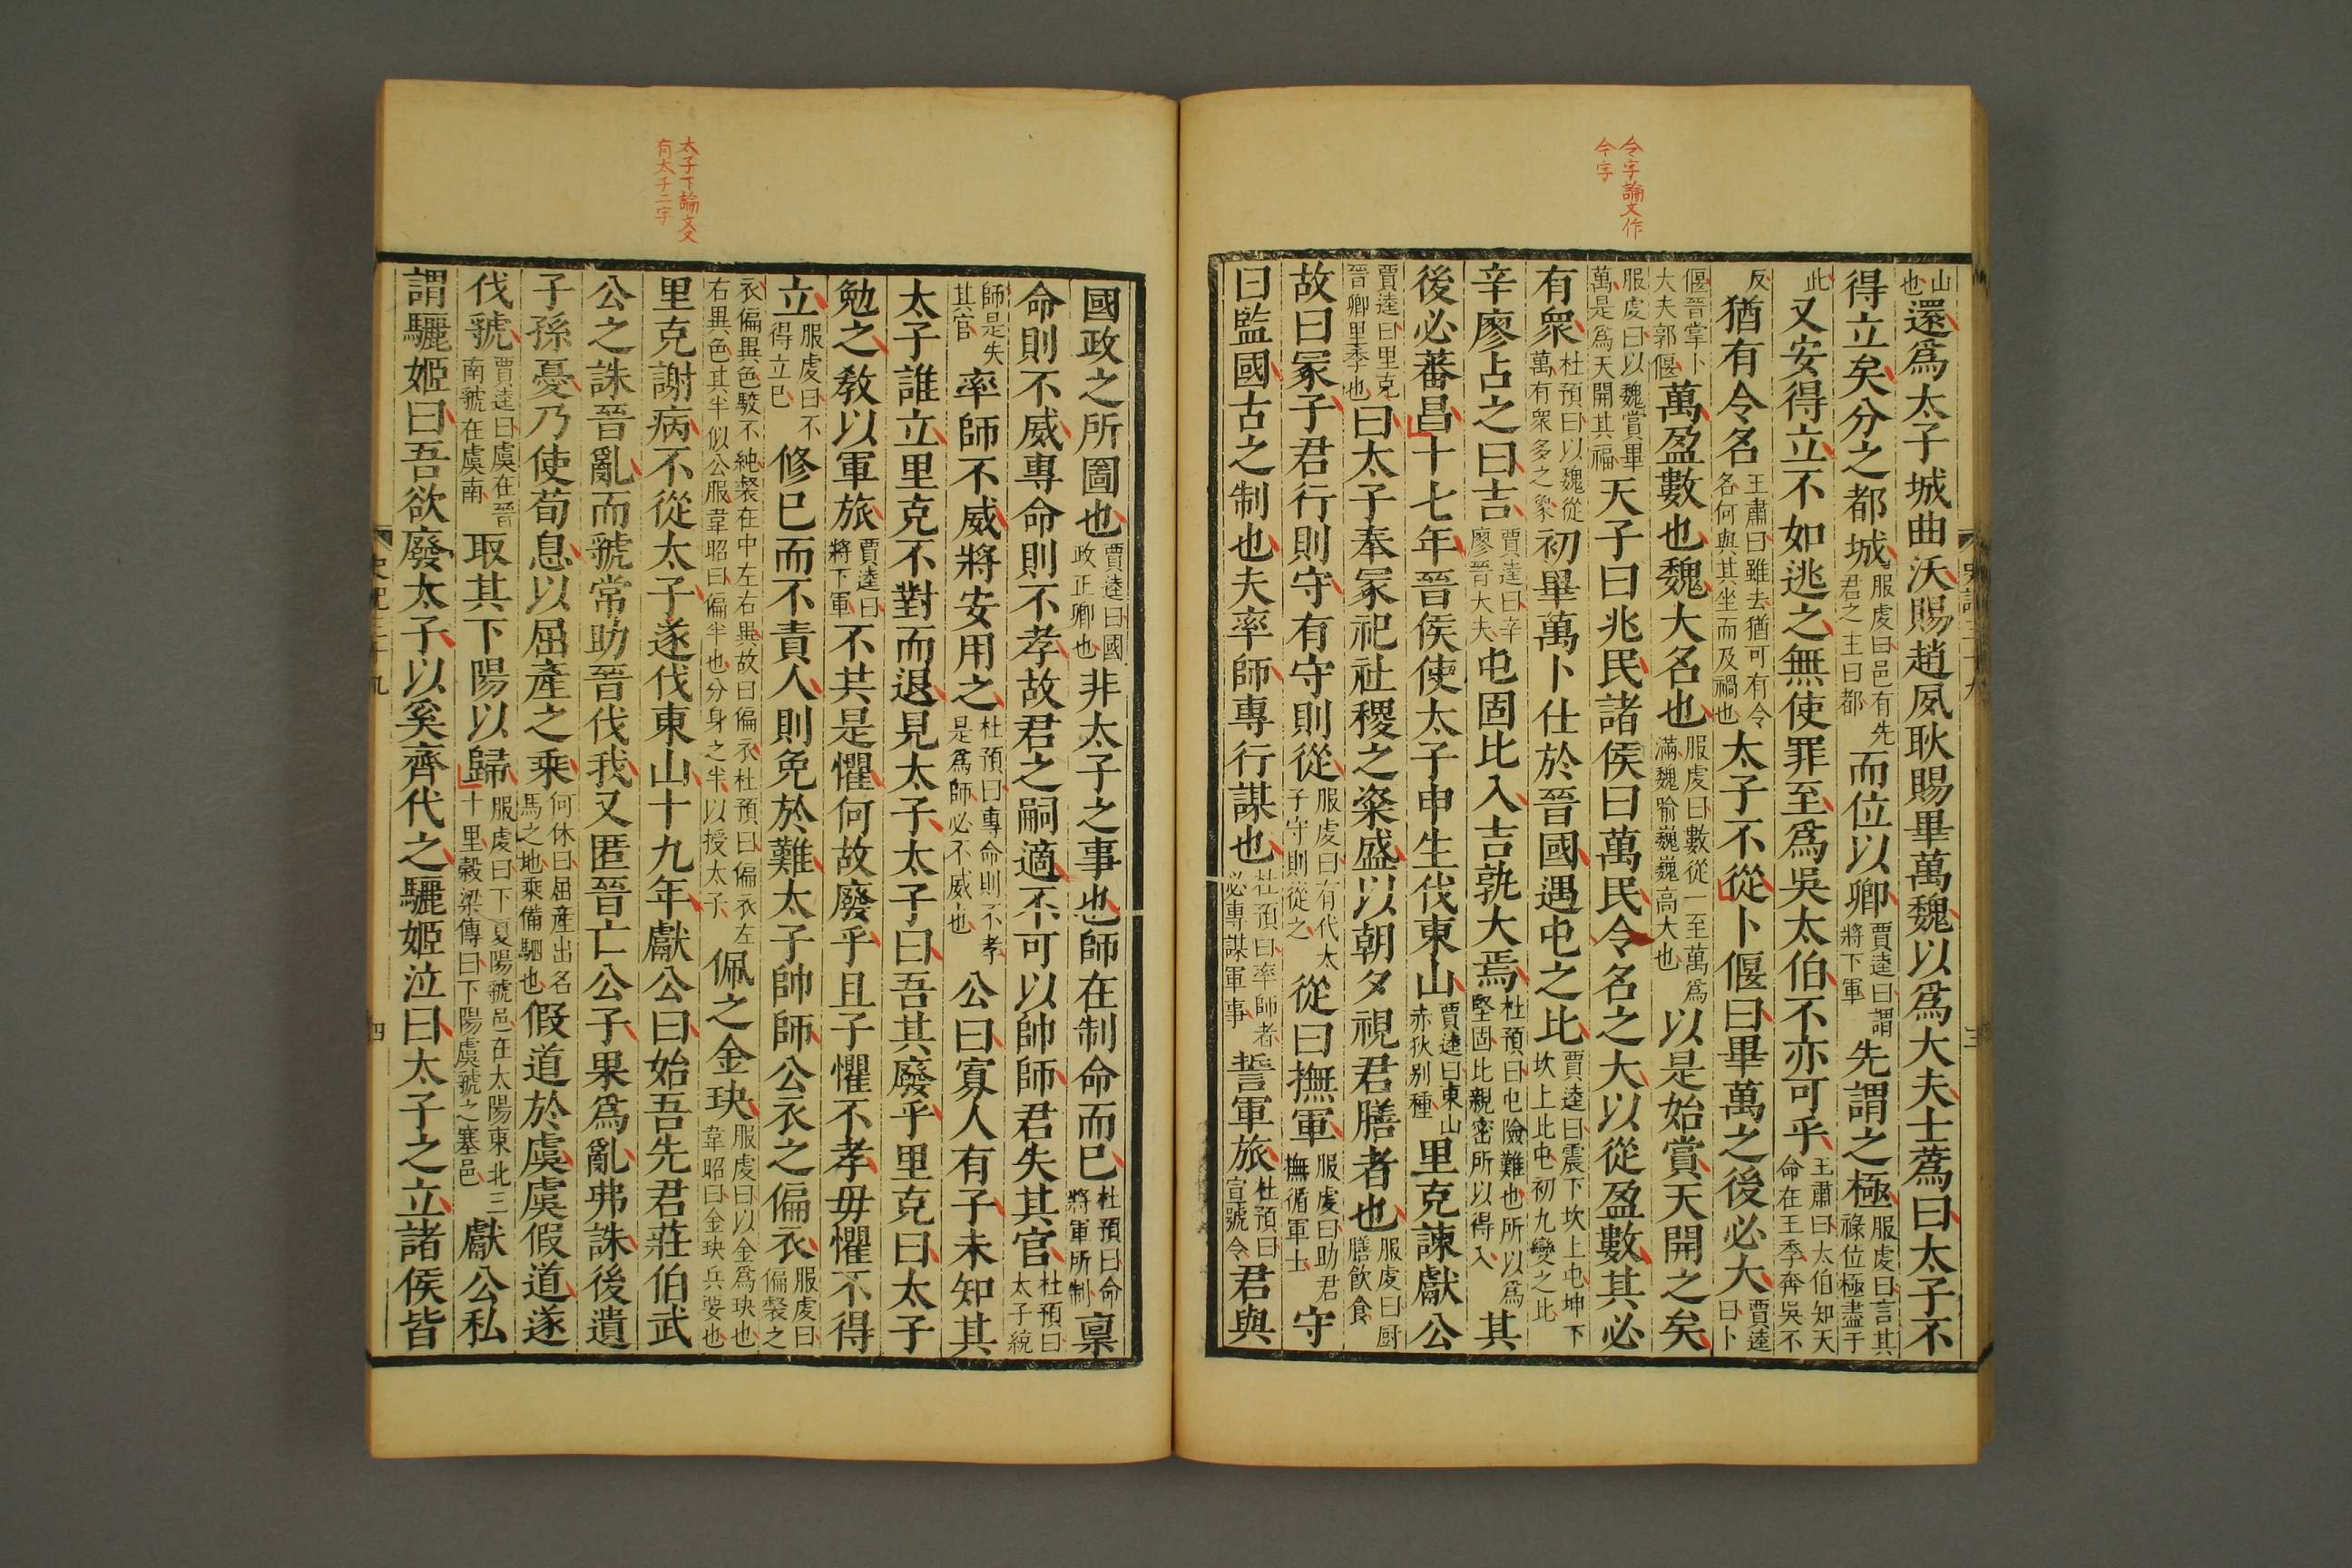 令字論文作
今字
山也還爲太子城曲沃賜趙夙耿賜畢萬魏以爲大夫士蔿曰太子不
得立矣分之都城服虔曰邑有先君之主曰都而位以卿賈逵曰謂將下軍先謂之極服虔曰言其祿位極盡于
此又安得立不如逃之無使罪至爲吳太伯不亦可乎王肅曰太伯知天命在王季奔吳不
反猶有令名王肅曰雖去猶可有令名何與其坐而及禍也太子不從卜偃曰畢萬之後必大賈逵曰卜
偃晉掌卜大夫郭偃萬盈數也魏大名也服虔曰數從一至萬爲滿魏喻巍巍高大也以是始賞天開之矣
服虔曰以魏賞畢萬是爲天開其福天子曰兆民諸侯曰萬民令名之大以從盈數其必
有衆杜預曰以魏從萬有衆多之象初畢萬卜仕於晉國遇屯之比賈逵曰震下坎上屯坤下坎上比屯初九變之比
辛廖占之曰吉賈逵曰辛廖晉大夫屯固比入吉孰大焉杜預曰屯險難也所以爲堅固比親密所以得入其
後必蕃昌十七年晉侯使太子申生伐東山賈逵曰東山赤狄別種里克諫獻公
賈逵曰里克晉卿里季也曰太子奉冢祀社稷之粢盛以朝夕視君膳者也服虔曰厨膳飲食
故曰冢子君行則守有守則從服虔曰有代太子守則從之從曰撫軍服虔曰助君撫循軍士守
曰監國古之制也夫率師專行謀也杜預曰率師者必專謀軍事誓軍旅杜預曰宣號令君與
太子下論文又
有太子二字
國政之所圖也賈逵曰國政正卿也非太子之事也師在制命而已杜預曰命將軍所制稟
命則不威專命則不孝故君之嗣適不可以帥師君失其官杜預曰太子統
師是失其官率師不威將安用之杜預曰專命則不孝是爲師必不威也公曰寡人有子未知其
太子誰立里克不對而退見太子太子曰吾其廢乎里克曰太子
勉之敎以軍旅賈逵曰將下軍不共是懼何故廢乎且子懼不孝毋懼不得
立服虔曰不得立已修已而不責人則免於難太子帥師公衣之偏衣服虔曰偏裻之
衣偏異色駮不純裻在中左右異故曰偏衣杜預曰偏衣左右異色其半似公服韋昭曰偏半也分身之半以授太子佩之金玦服虔曰以金爲玦也韋昭曰金玦兵要也
里克謝病不從太子遂伐東山十九年獻公曰始吾先君莊伯武
公之誅晉亂而虢常助晉伐我又匿晉亡公子果爲亂弗誅後遺
子孫憂乃使荀息以屈產之乘何休曰屈產出名馬之地乘備駟也假道於虞虞假道遂
伐虢賈逵曰虞在晉南虢在虞南取其下陽以歸服虔曰下夏陽虢邑在太陽東北三十里穀梁傳曰下陽虞虢之塞邑獻公私
謂驪姬曰吾欲廢太子以奚齊代之驪姬泣曰太子之立諸侯皆
史記三十九
四
三